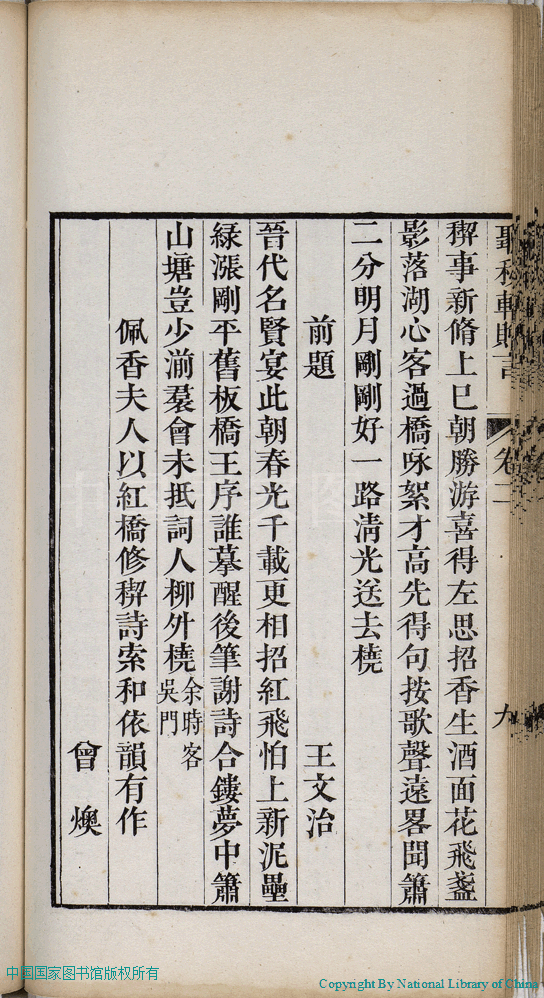 聽秋軒贈言 卷二 九
稧事新脩上巳朝勝游喜得左思招香生酒面花飛盞
影落湖心客過橋咏絮才高先得句按歌聲遠畧聞簫
二分明月剛剛好一路淸光送去橈
前題 王文治
晉代名賢宴此朝春光千載更相招紅飛怕上新泥壘
緑漲剛平舊板橋王序誰摹醒後筆謝詩合鏤夢中簫
山塘豈少湔裠會未抵詞人柳外橈余時客吳門
佩香夫人以紅橋修稧詩索和依韻有作
曾燠
中国国家图书馆版权所有
Copyright By National Library of China